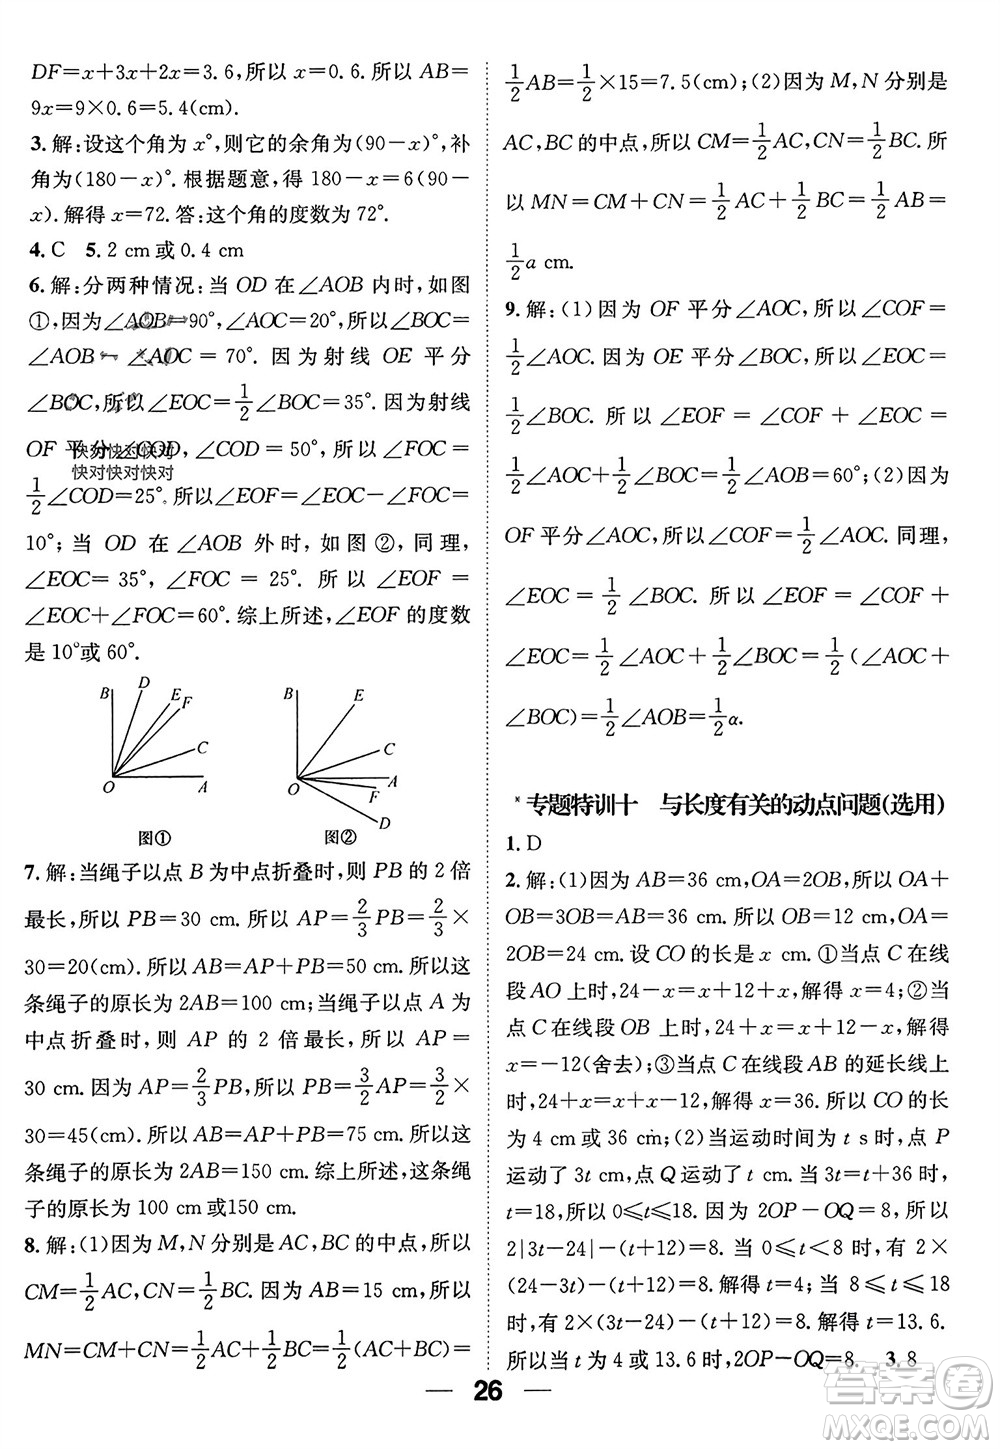 DF=x+3x+2x=3.6,所以x=0.6.所以AB=
9x=9×0.6=5.4(cm).
3.解:设这个角为x°,则它的余角为(90-x)°,补
角为(180-x)°.根据题意,得180-x=6(90-
x).解得x=72.答:这个角的度数为72°.
4.C 5.2 cm或0.4 cm
6.解:分两种情况:当OD在∠AOB内时,如图
①,因为∠AOB=90°,∠AOC=20°,所以∠BOC=
∠AOB-∠AOC=70°.因为射线OE平分
∠BOC,所以∠EOC=1/2∠BOC=35°.因为射线
OF平分∠COD,∠COD=50°,所以∠FOC=
快对快对快对
快对快对快对
1/2∠COD=25°.所以∠EOF=∠EOC-∠FOC=
10°;当OD在∠AOB外时,如图②,同理,
∠EOC=35°,∠FOC=25°.所以∠EOF=
∠EOC+∠FOC=60°.综上所述,∠EOF的度数
是10°或60°.
B D E F C O A
图①
B E C A F D O
图②
7.解:当绳子以点B为中点折叠时,则PB的2倍
最长,所以PB=30 cm.所以AP=2/3PB=2/3×
30=20(cm).所以AB=AP+PB=50 cm.所以这
条绳子的原长为2AB=100 cm;当绳子以点A为
中点折叠时,则AP的2倍最长,所以AP=
30 cm.因为AP=2/3PB,所以PB=3/2AP=3/2×
30=45(cm).所以AB=AP+PB=75 cm.所以这
条绳子的原长为2AB=150 cm.综上所述,这条绳
子的原长为100 cm或150 cm.
8.解:(1)因为M,N分别是AC,BC的中点,所以
CM=1/2AC,CN=1/2BC.因为AB=15 cm,所以
MN=CM+CN=1/2AC+1/2BC=1/2(AC+BC)=
1/2AB=1/2×15=7.5(cm);(2)因为M,N分别是
AC,BC的中点,所以CM=1/2AC,CN=1/2BC.所
以MN=CM+CN=1/2AC+1/2BC=1/2AB=
1/2a cm.
9.解:(1)因为OF平分∠AOC,所以∠COF=
1/2∠AOC.因为OE平分∠BOC,所以∠EOC=
1/2∠BOC.所以∠EOF=∠COF+∠EOC=
1/2∠AOC+1/2∠BOC=1/2∠AOB=60°;(2)因为
OF平分∠AOC,所以∠COF=1/2∠AOC.同理,
∠EOC=1/2∠BOC.所以∠EOF=∠COF+
∠EOC=1/2∠AOC+1/2∠BOC=1/2(∠AOC+
∠BOC)=1/2∠AOB=1/2α.
*专题特训十 与长度有关的动点问题(选用)
1.D
2.解:(1)因为AB=36 cm,OA=2OB,所以OA+
OB=3OB=AB=36 cm.所以OB=12 cm,OA=
2OB=24 cm.设CO的长是x cm.①当点C在线
段AO上时,24-x=x+12+x,解得x=4;②当
点C在线段OB上时,24+x=x+12-x,解得
x=-12(舍去);③当点C在线段AB的延长线上
时,24+x=x+x-12,解得x=36.所以CO的长
为4 cm或36 cm;(2)当运动时间为t s时,点P
运动了3t cm,点Q运动了t cm.当3t=t+36时,
t=18,所以0≤t≤18.因为2OP-OQ=8,所以
2|3t-24|-(t+12)=8.当0≤t≤8时,有2×
(24-3t)-(t+12)=8.解得t=4;当8≤t≤18
时,有2×(3t-24)-(t+12)=8.解得t=13.6.
所以当t为4或13.6时,2OP-OQ=8. 3.8
26
答案卷
MXQE.COM